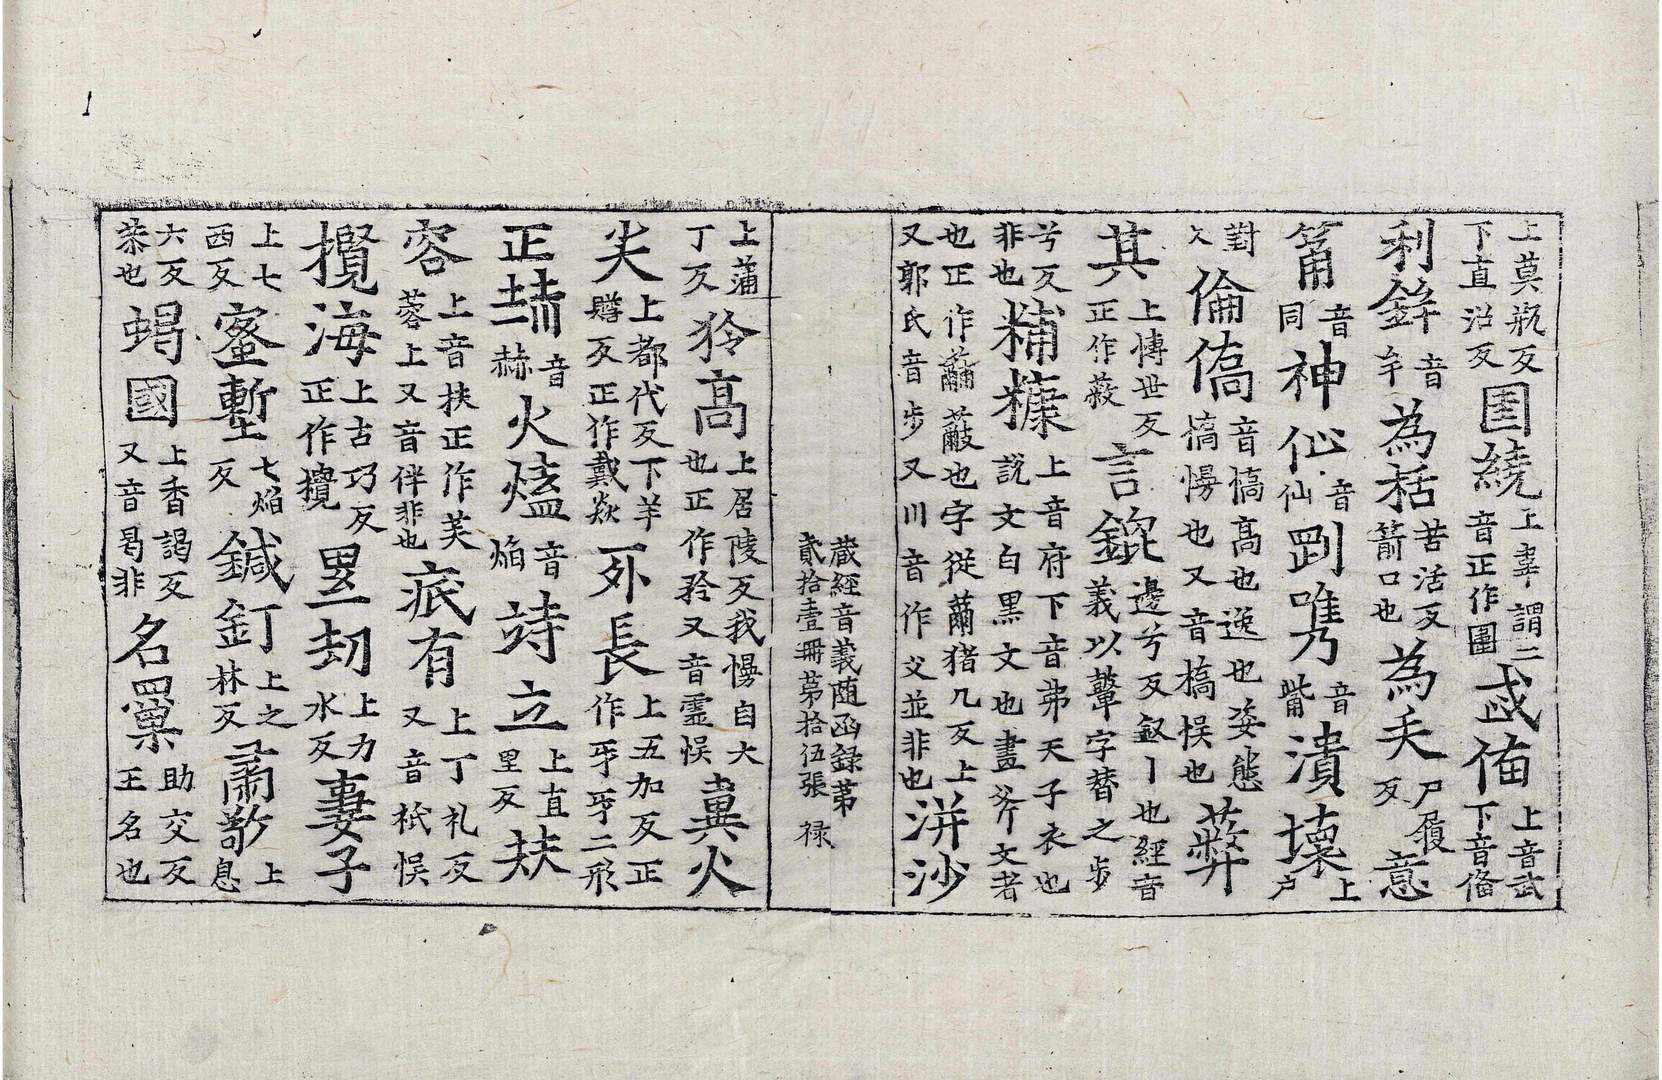 上莫瓶反下直沿反圍繞上辜謂二音正作圍武俻上音武下音俻
利鉾音牟為栝苦活反箭口也為夭尸履反意
筩音同神仙音仙剛觜音觜潰壞上户
對反倫僑音憍高也逸也姿態憍慢也又音橋悮也弊
其上愽世反正作薮言錕邊兮反釵丨也經音義以𨋎字替之步
兮反非也精糠上音府下音弗天子衣也説文白黒文也畫斧文者
也正作黼黻也字從黹猪几反上又郭氏音步又川音作父並非也洴沙
藏經音義随函録第貳拾壹冊第拾伍張 禄
上蒲丁反狑髙上居陵反我慢自大也正作矜又音靈悮糞火
尖上都代反下羊贍反正作戴焱外長上五加反正作牙㸦二形
正𤍽音赫火熆音焰詩立上直里反扶
容上音扶正作芙蓉上又音伴非也疷有上丁礼反又音祇悮
攬海上古巧反正作攪里刧上力水反妻子
上七西反蜜塹七焰反鍼釘上之林反肅敬上息
六反恭也蝎國上香謁反又音曷非名罺助交反王名也